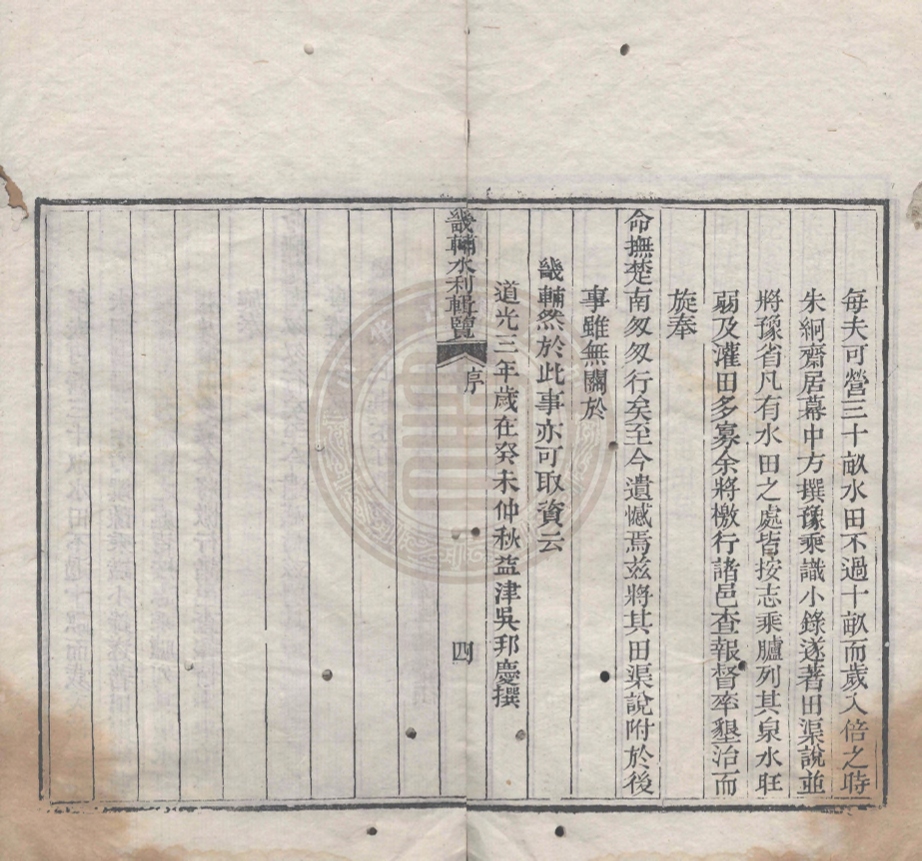 每夫可營三十畝水田不過十畝而歲入倍之時
朱絅齋居幕中方撰豫乘識小錄遂著田渠說並
將豫省凡有水田之處皆按志乘臚列其泉水旺
弱及灌田多寡余將檄行諸邑查報督率墾治而
旋奉
命撫楚南匆匆行矣至今遺憾焉茲將其田渠說附於後
事雖無關於
畿輔然於此事亦可取資云
道光三年歲在癸未仲秋益津吳邦慶撰
畿輔水利輯覽 序 四